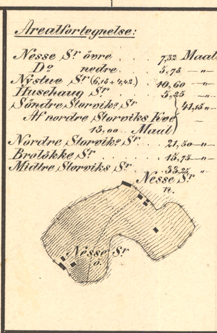 Arealfortegnelse:
Nesse Sr övre . 7,32 Maal
Do nedre . 5,75 —„—
Nÿstue Sr (6,18 + 4,42) . 10,60 —„—
Husehaug Sr . 5,25 —„—
Söndre Storviks Sr 41,15 —„—
Af nordre Storviks
15,00 Maal
Nordre Storviks Sr . 21,50 —„—
Brolökke Sr . 15,75 —„—
Midtre Storviks Sr . 33,25 —„—
Nesse Sr
n.
Nesse Sr
ö.